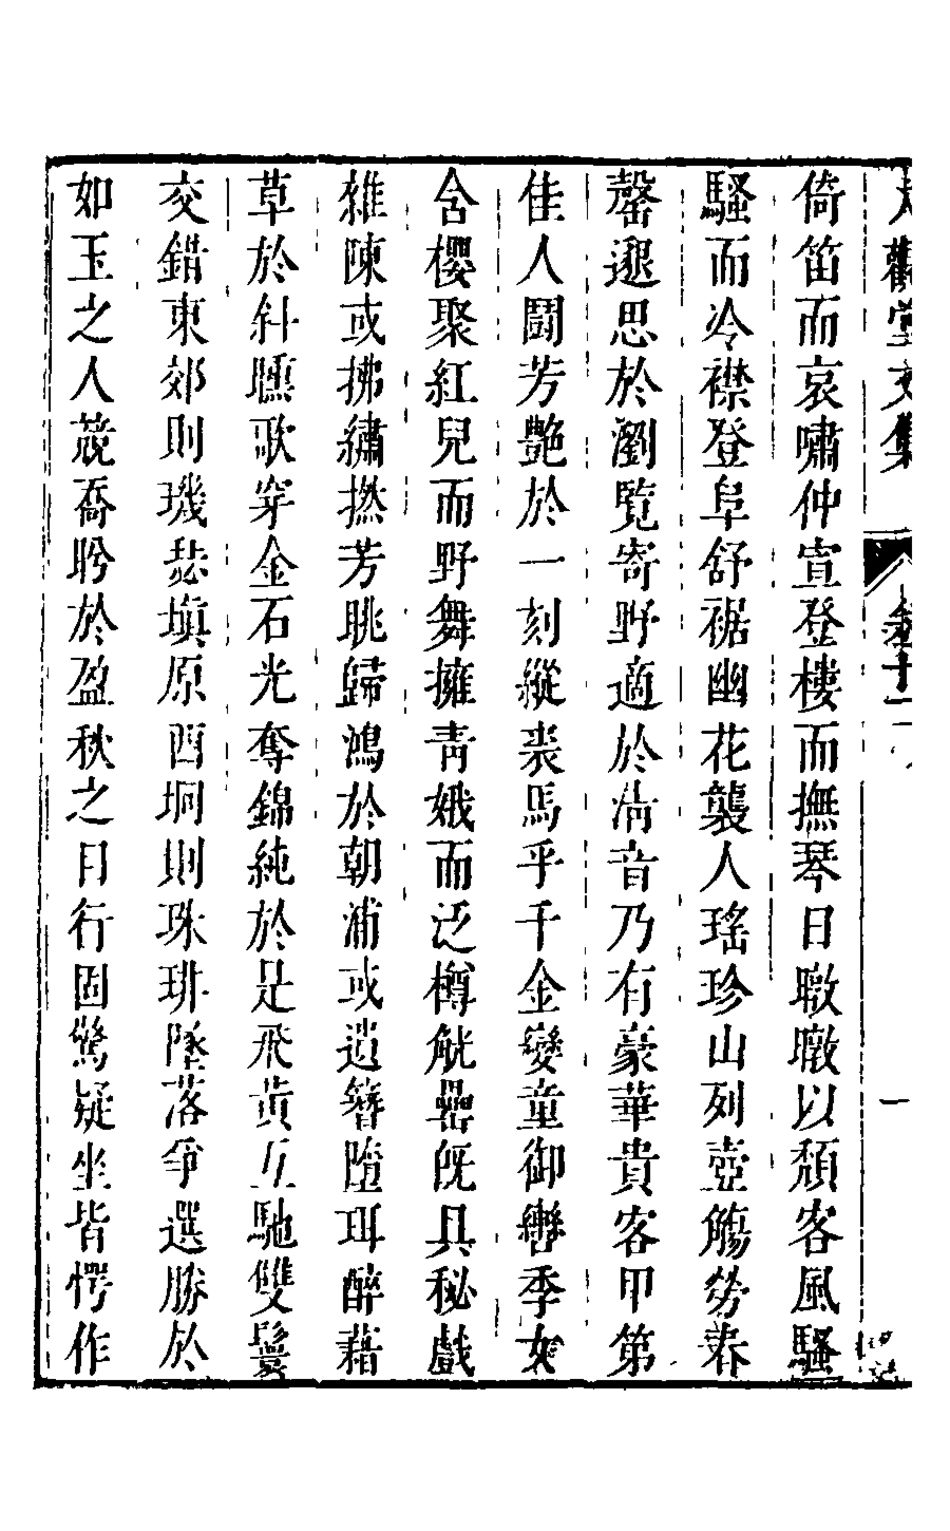 大觀堂文集 卷十一 一
倚笛而哀嘯仲宣登樓而撫琴日暾暾以頹客風騷
騷而冷襟登阜舒裾幽花襲人瑤珍山列壺觴勞春
罄遐思於瀏覽寄野適於淸音乃有豪華貴客甲第
佳人鬪芳艷於一刻縱裘馬乎千金孌童御轡季女
含櫻聚紅兒而野舞擁靑娥而泛樽觥罍旣具秘戲
雜陳或拂繡撚芳眺歸鴻於朝浦或遺簪墮珥醉藉
草於斜曛歌穿金石光奪錦純於是飛黃互馳雙鬟
交錯東郊則璣瑟塡原西坰則珠琲墜落爭選勝於
如玉之人競喬聆於盈秋之日行固驚疑坐皆愕作